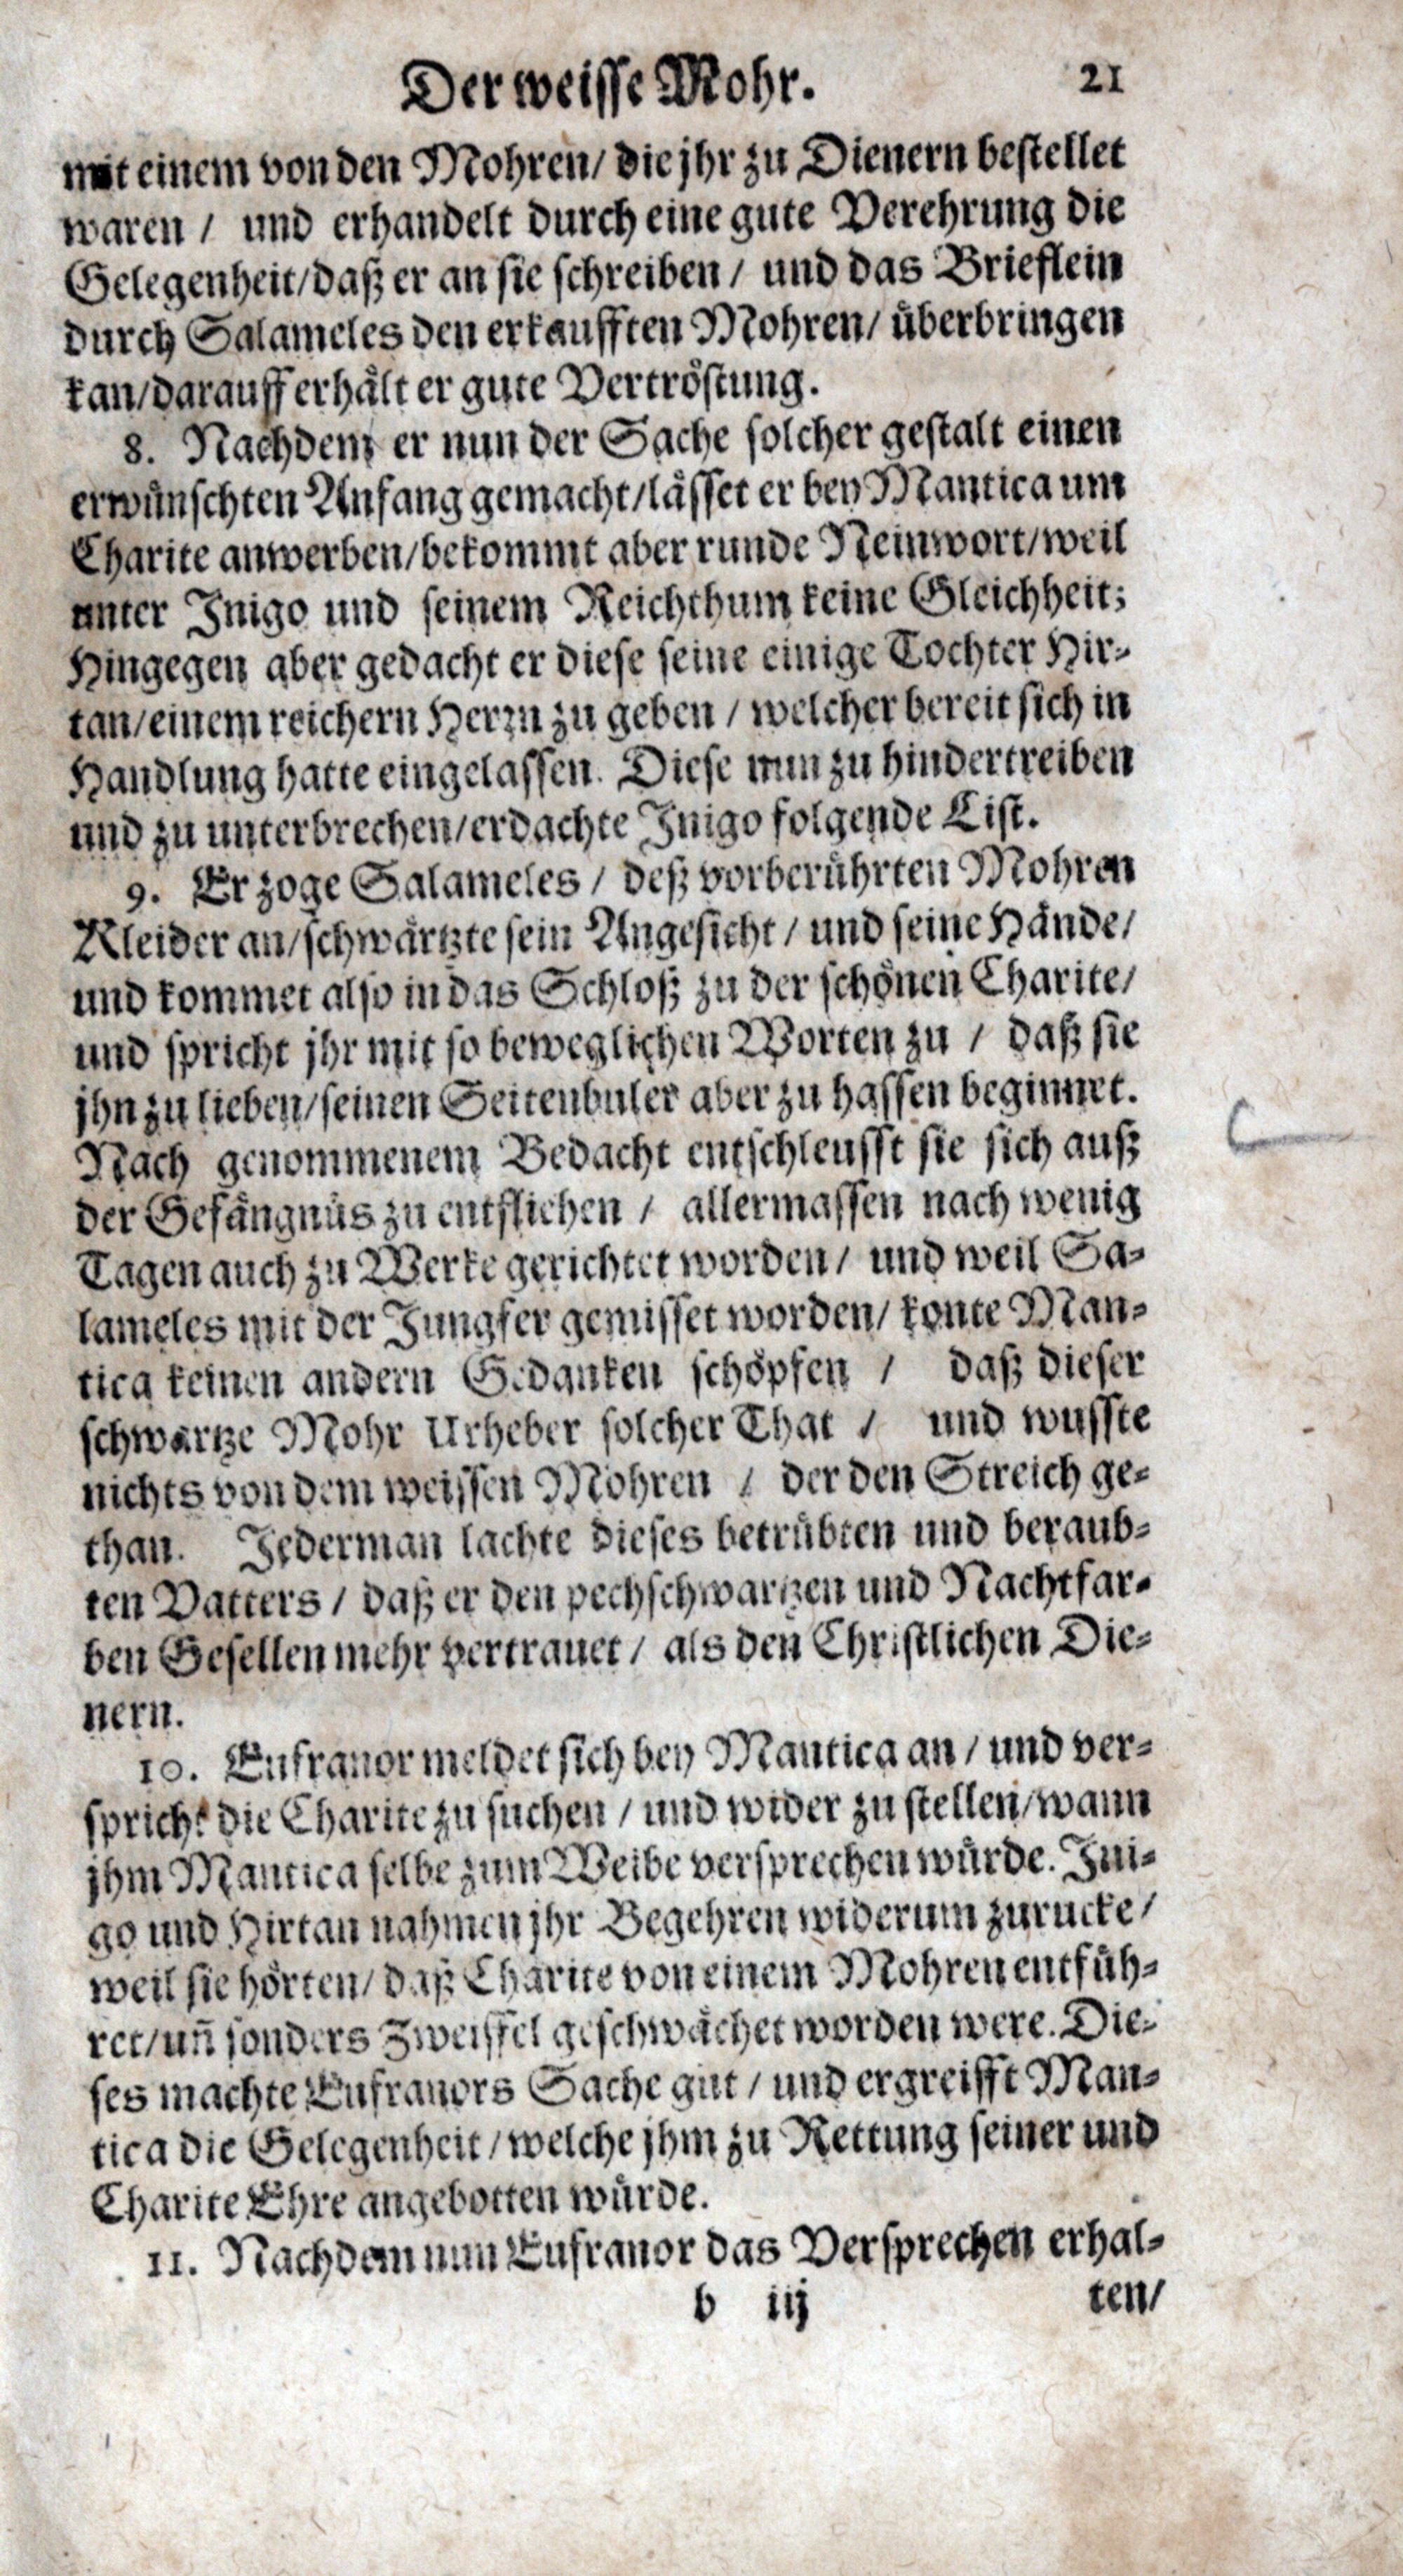 Der weisse Mohr. 21
mit einem von den Mohren/ die jhr zu Dienern bestellet
waren / und erhandelt durch eine gute Verehrung die
Gelegenheit/daß er an sie schreiben / und das Brieflein
durch Salameles den erkaufften Mohren/ überbringen
kan/darauff erhält er gute Vertröstung.
8. Nachdem er nun der Sache solcher gestalt einen
erwünschten Anfang gemacht/lässet er bey Mantica um
Charite anwerben/bekommt aber runde Neinwort/weil
unter Inigo und seinem Reichthum keine Gleichheit;
Hingegen aber gedacht er diese seine einige Tochter Hir-
tan/einem reichern Herrn zu geben / welcher bereit sich in
Handlung hatte eingelassen. Diese nun zu hindertreiben
und zu unterbrechen/erdachte Inigo folgende List.
9. Er zoge Salameles / deß vorberührten Mohren
Kleider an/schwärtzte sein Angesicht / und seine Hände/
und kommet also in das Schloß zu der schönen Charite/
und spricht jhr mit so beweglichen Worten zu / daß sie
jhn zu lieben/seinen Seitenbuler aber zu hassen beginnet.
Nach genommenem Bedacht entschleusst sie sich auß
der Gefängnüs zu entfliehen / allermassen nach wenig
Tagen auch zu Werke gerichtet worden/ und weil Sa-
lameles mit der Jungfer gemisset worden/ konte Man-
tica keinen andern Gedanken schöpfen / daß dieser
schwartze Mohr Urheber solcher That / und wusste
nichts von dem weissen Mohren / der den Streich ge-
than. Jederman lachte dieses betrübten und beraub-
ten Vatters / daß er den pechschwartzen und Nachtfar-
ben Gesellen mehr vertrauet / als den Christlichen Die-
nern.
10. Eufranor meldet sich bey Mantica an / und ver-
spricht die Charite zu suchen / und wider zu stellen/wann
jhm Mantica selbe zum Weibe versprechen würde. Ini-
go und Hirtan nahmen jhr Begehren widerum zurucke/
weil sie hörten/ daß Charite von einem Mohren entfüh-
ret/uñ sonders Zweiffel geschwächet worden were. Die-
ses machte Eufranors Sache gut / und ergreifft Man-
tica die Gelegenheit/welche jhm zu Rettung seiner und
Charite Ehre angebotten würde.
11. Nachdem nun Eufranor das Versprechen erhal-
b iij ten/